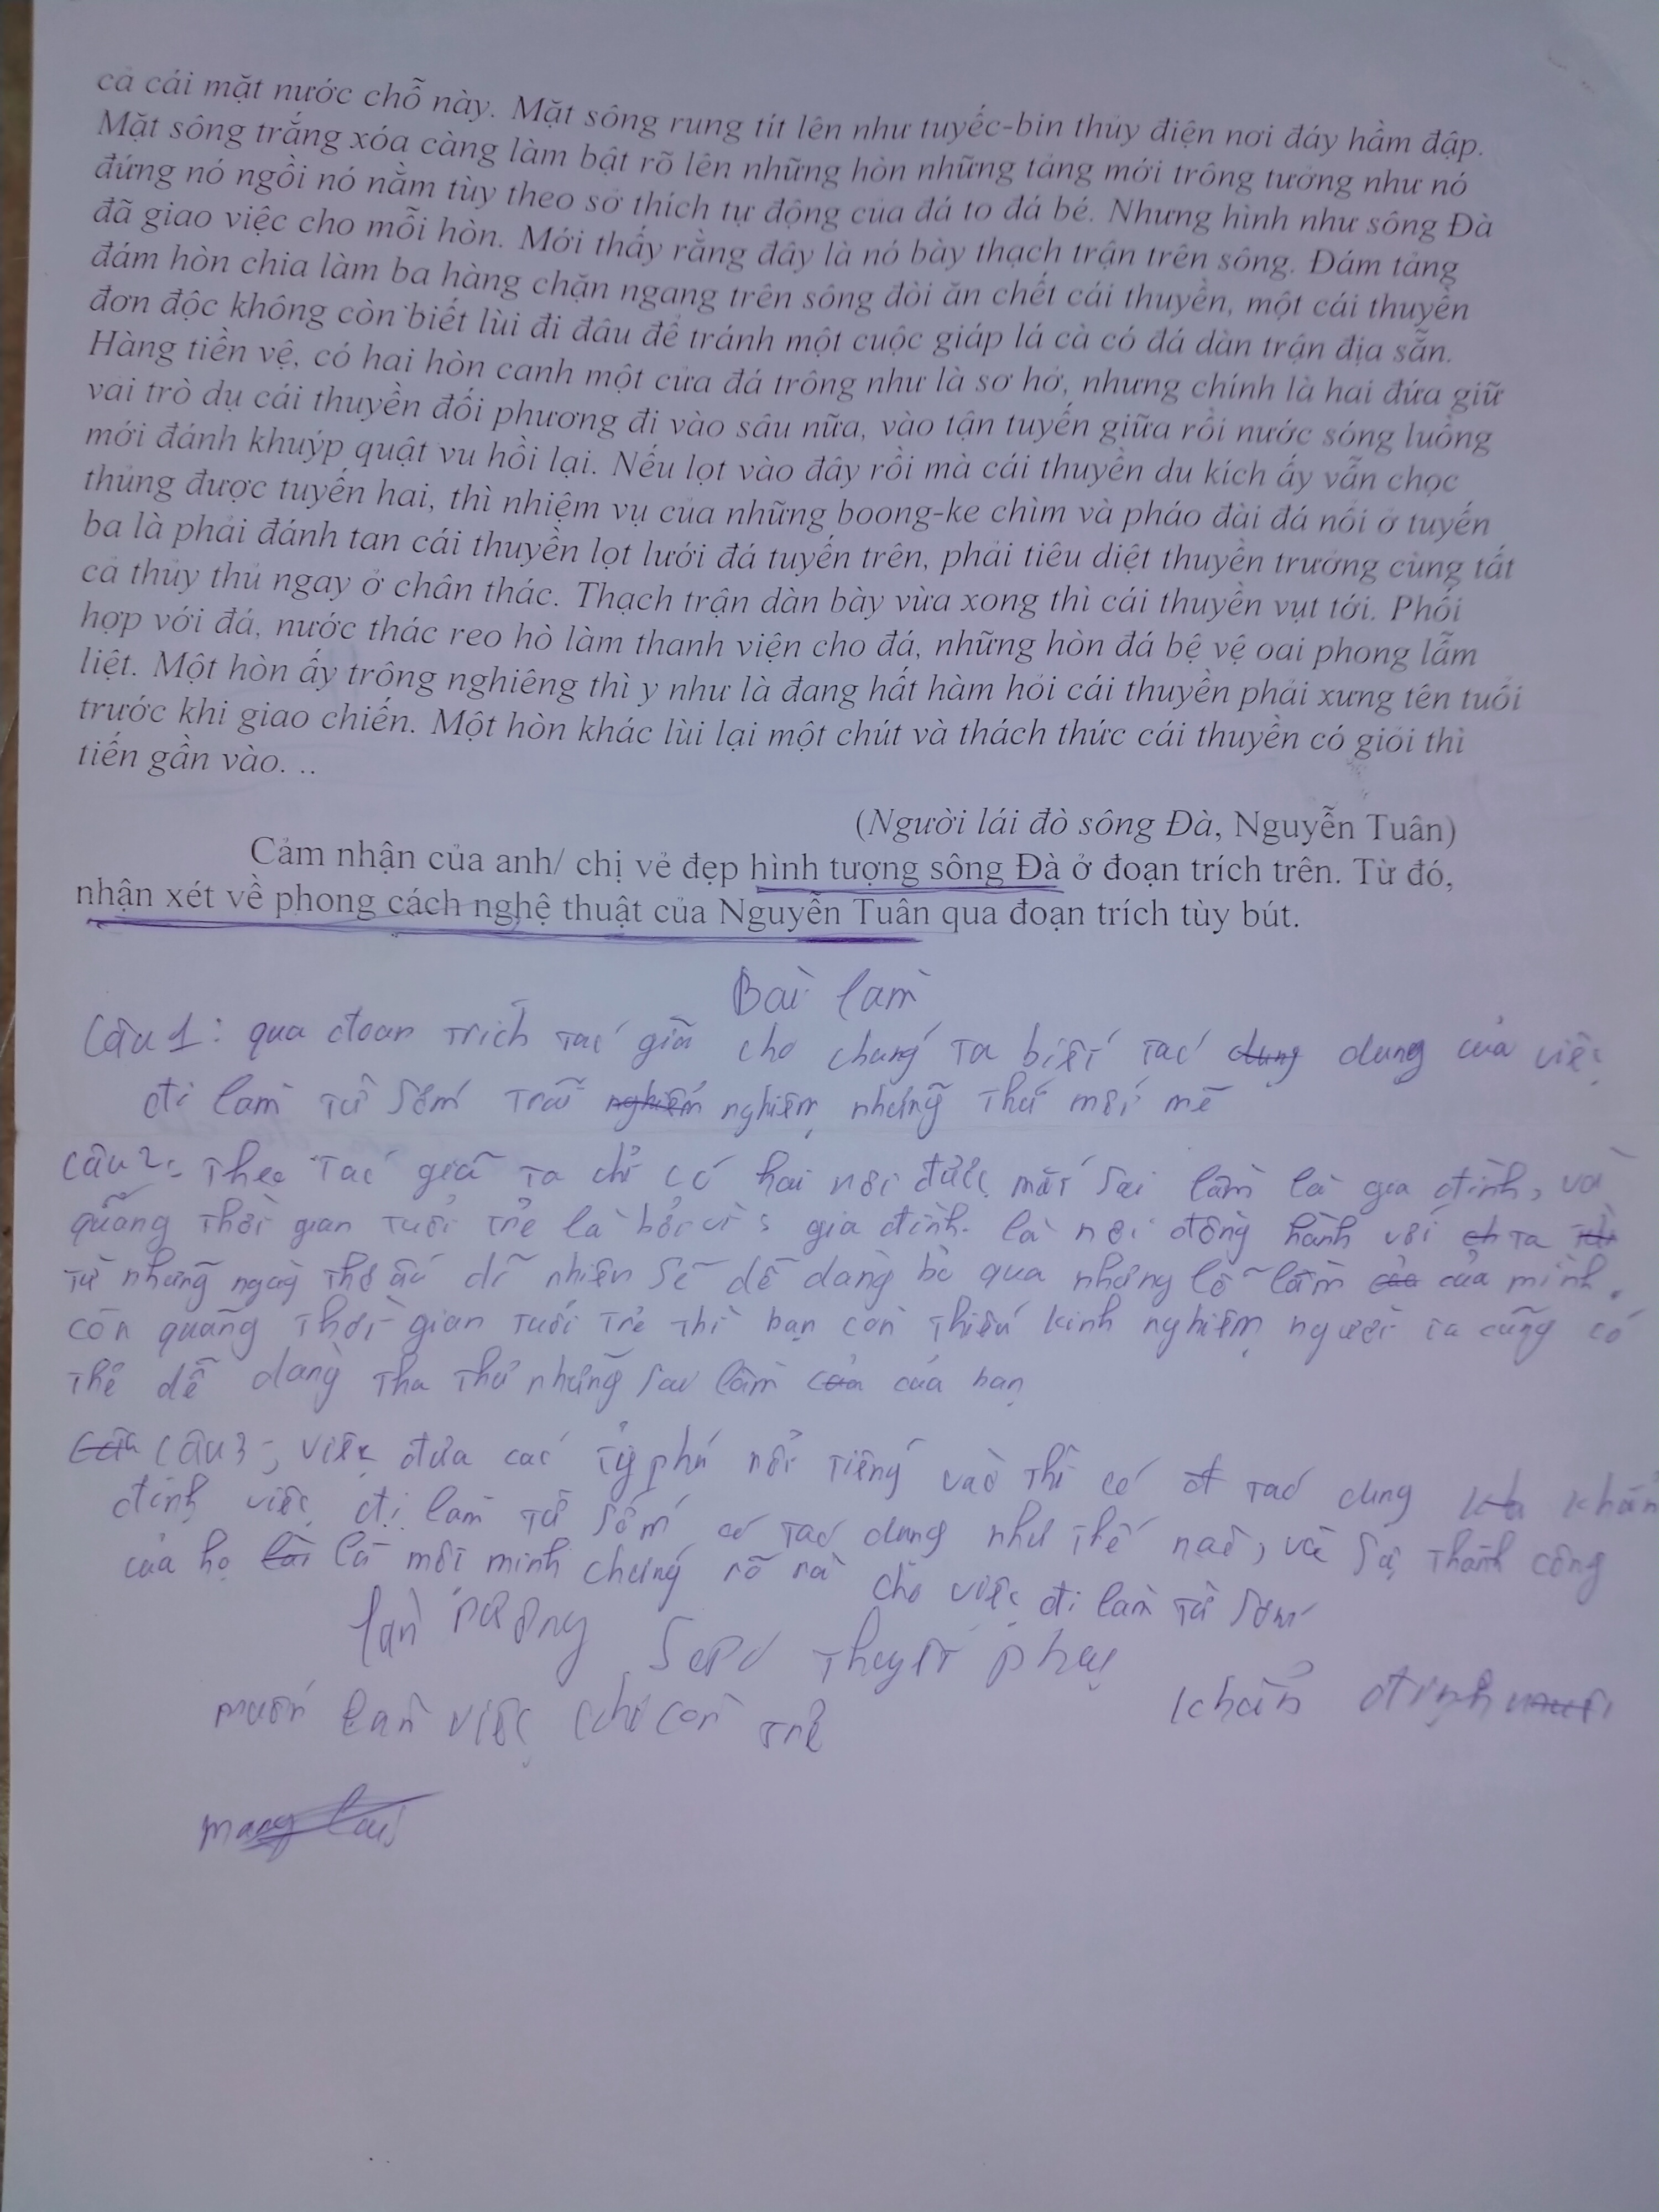 cả cái mặt nước chỗ này. Mặt sông rung tít lên như tuyếc-bin thủy điện nơi đáy hầm đập.
Mặt sông trắng xóa càng làm bật rõ lên những hòn những tảng mới trông tưởng như nó
đứng nó ngồi nó nằm tùy theo sở thích tự động của đá to đá bé. Nhưng hình như sông Đà
đã giao việc cho mỗi hòn. Mới thấy rằng đây là nó bày thạch trận trên sông. Đám tảng
đám hòn chia làm ba hàng chặn ngang trên sông đòi ăn chết cái thuyền, một cái thuyền
đơn độc không còn biết lùi đi đâu để tránh một cuộc giáp lá cà có đá dàn trận địa sẵn.
Hàng tiền vệ, có hai hòn canh một cửa đá trông như là sơ hở, nhưng chính là hai đứa giữ
vai trò dụ cái thuyền đối phương đi vào sâu nữa, vào tận tuyến giữa rồi nước sóng luồng
mới đánh khuýp quật vu hồi lại. Nếu lọt vào đây rồi mà cái thuyền du kích ấy vẫn chọc
thủng được tuyến hai, thì nhiệm vụ của những boong-ke chìm và pháo đài đá nổi ở tuyến
ba là phải đánh tan cái thuyền lọt lưới đá tuyến trên, phải tiêu diệt thuyền trưởng cùng tất
cả thủy thủ ngay ở chân thác. Thạch trận dàn bày vừa xong thì cái thuyền vụt tới. Phối
hợp với đá, nước thác reo hò làm thanh viện cho đá, những hòn đá bệ vệ oai phong lẫm
liệt. Một hòn ấy trông nghiêng thì y như là đang hất hàm hỏi cái thuyền phải xưng tên tuổi
trước khi giao chiến. Một hòn khác lùi lại một chút và thách thức cái thuyền có giỏi thì
tiến gần vào. ..
(Người lái đò sông Đà, Nguyễn Tuân)
Cảm nhận của anh/ chị vẻ đẹp hình tượng sông Đà ở đoạn trích trên. Từ đó,
nhận xét về phong cách nghệ thuật của Nguyễn Tuân qua đoạn trích tùy bút.
Bài làm
Câu 1: qua đoạn trích tác giả cho chúng ta biết tác dung dung của việc
đi làm từ sớm trải nghiệm nghiệm những thứ mới mẽ
Câu 2: Theo tác giả ta chỉ có hai nơi được mắc sai lầm là gia đình, và
quãng thời gian tuổi trẻ là bởi vì: gia đình là nơi đồng hành với ta
từ những ngày thơ ấu dĩ nhiên sẽ dễ dàng bỏ qua những lỗi lầm của mình.
còn quãng thời gian tuổi trẻ thì bạn còn thiếu kinh nghiệm người ta cũng có
thể dễ dàng tha thứ những sai lầm của của bạn
Câu Câu 3: việc đưa các tỷ phú nổi tiếng vào thì có tác dung khẳn
định việc đi làm từ sớm có tác dung như thế nào, và sự thành công
của họ là môi minh chứng rõ ràn cho việc đi làm từ sớm
thuyết phục
khẳn định
muốn làm việc khi còn trẻ
mang lại